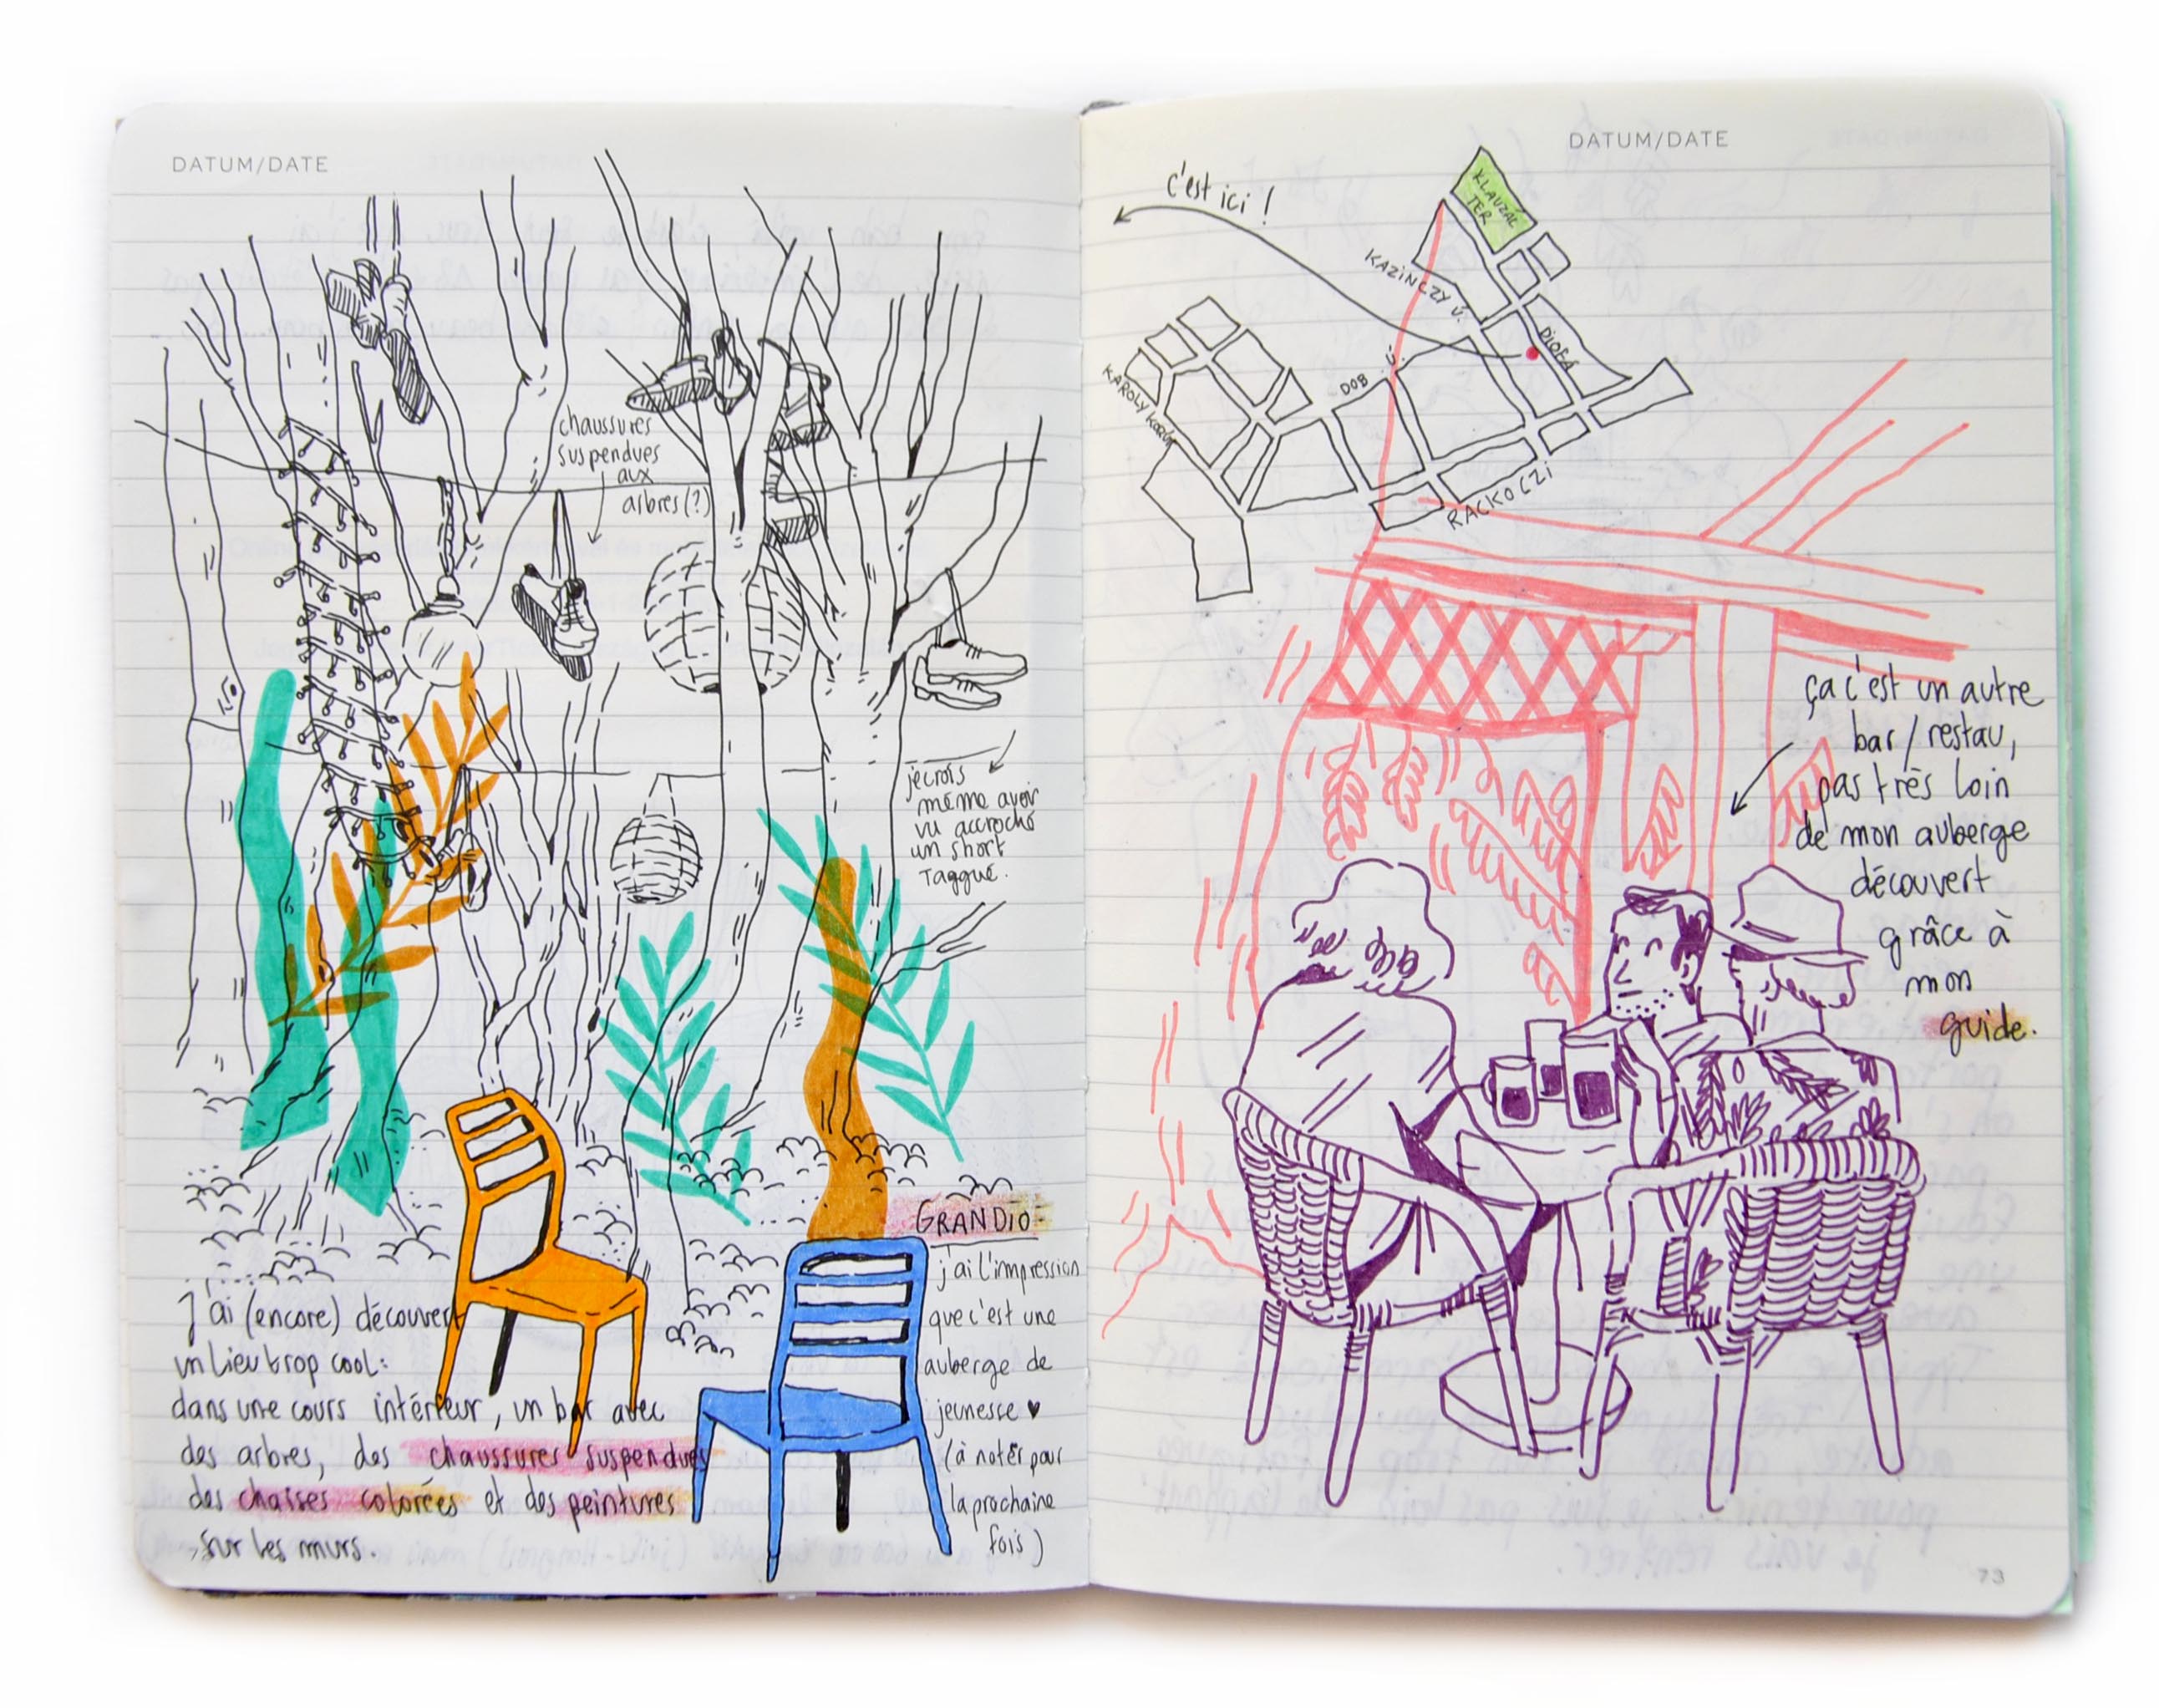 DATUM/DATE
chaussures
suspendues
aux
arbres (?)
je crois
même avoir
vu accroché
un short
Taggué.
J'ai (encore) découvert
un lieu trop cool:
dans une cours intérieur, un bar avec
des arbres, des chaussures suspendues
des chaises colorées et des peintures
sur les murs.
GRANDIO
j'ai l'impression
que c'est une
auberge de
jeunesse ♥
(à noter pour
la prochaine
fois)
DATUM/DATE
c'est ici !
KLAUZÁL
TER
KAZINCZY U.
DIOFA
DOB
KAROLY KORÚT
RACKOCZI
ça c'est un autre
bar / restau,
pas très loin
de mon auberge
découvert
grâce à
mon
guide.
73